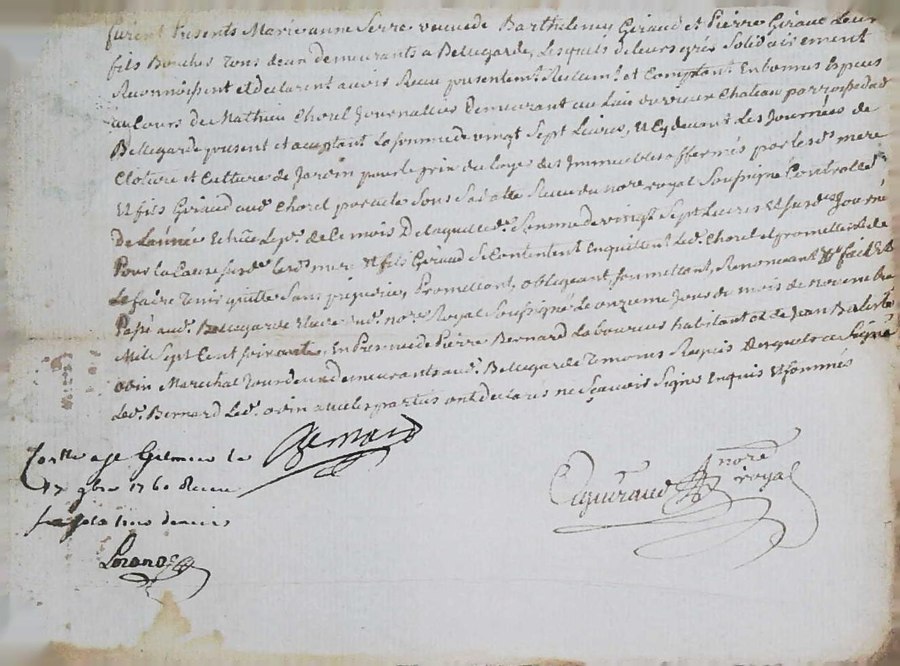 furent Présents Marie anne Serre veuve de Barthelemy Giraud et Pierre Giraud Leur
fils Boucher tous deux demeurants a Bellegarde, Lesquels de leurs grés Solidairement
Reconnoissent et déclarent avoir Receu présentemt Réelemt et Comptant En bonnes Espèces
au Cours de Mathieu Chorel Journalier Demeurant au Lieu du vieux Chateau parroisse dud
Bellegarde present et acceptant La somme de vingt Sept Livres, Les Journées de
Cloture et Culture de Jardin pour le prix du Loyer des Immeubles affermés par lesd. mere
Et fils Giraud aud. Chorel par acte Sous Sa datte Receu du nore royal Soussigné Controllé
De L'année Echüe Le de ce mois De laquelle de. Somme de vingt Sept Livres Et surde. Journée
Pour la Cause surde. lesd. mere Et fils Giraud Se Contentent En quittent Led. Chorel et promettent de
Le faire tenir quitte Sans préjudice, Promettant, obligeant, soummettant, Renonceant fait Et
Passé aud. Bellegarde Etude dud. nore. Royal Soussigné Le onzieme Jour du mois de novembre
Mil Sept Cent soixante, En Presence de Pierre Bernard Laboureur habitant et de Jean
odin Marechal tous deux demeurants aud. Bellegarde Temoins Requis Desquels a Signé
Led. Bernard Led. odin avec les parties ont déclarés ne Sçavoir Signer Enquis Et sommés
Bernard
Con̄tlle a St Galmier le
9bre 1760 Receu
sols deniers
nore
royal